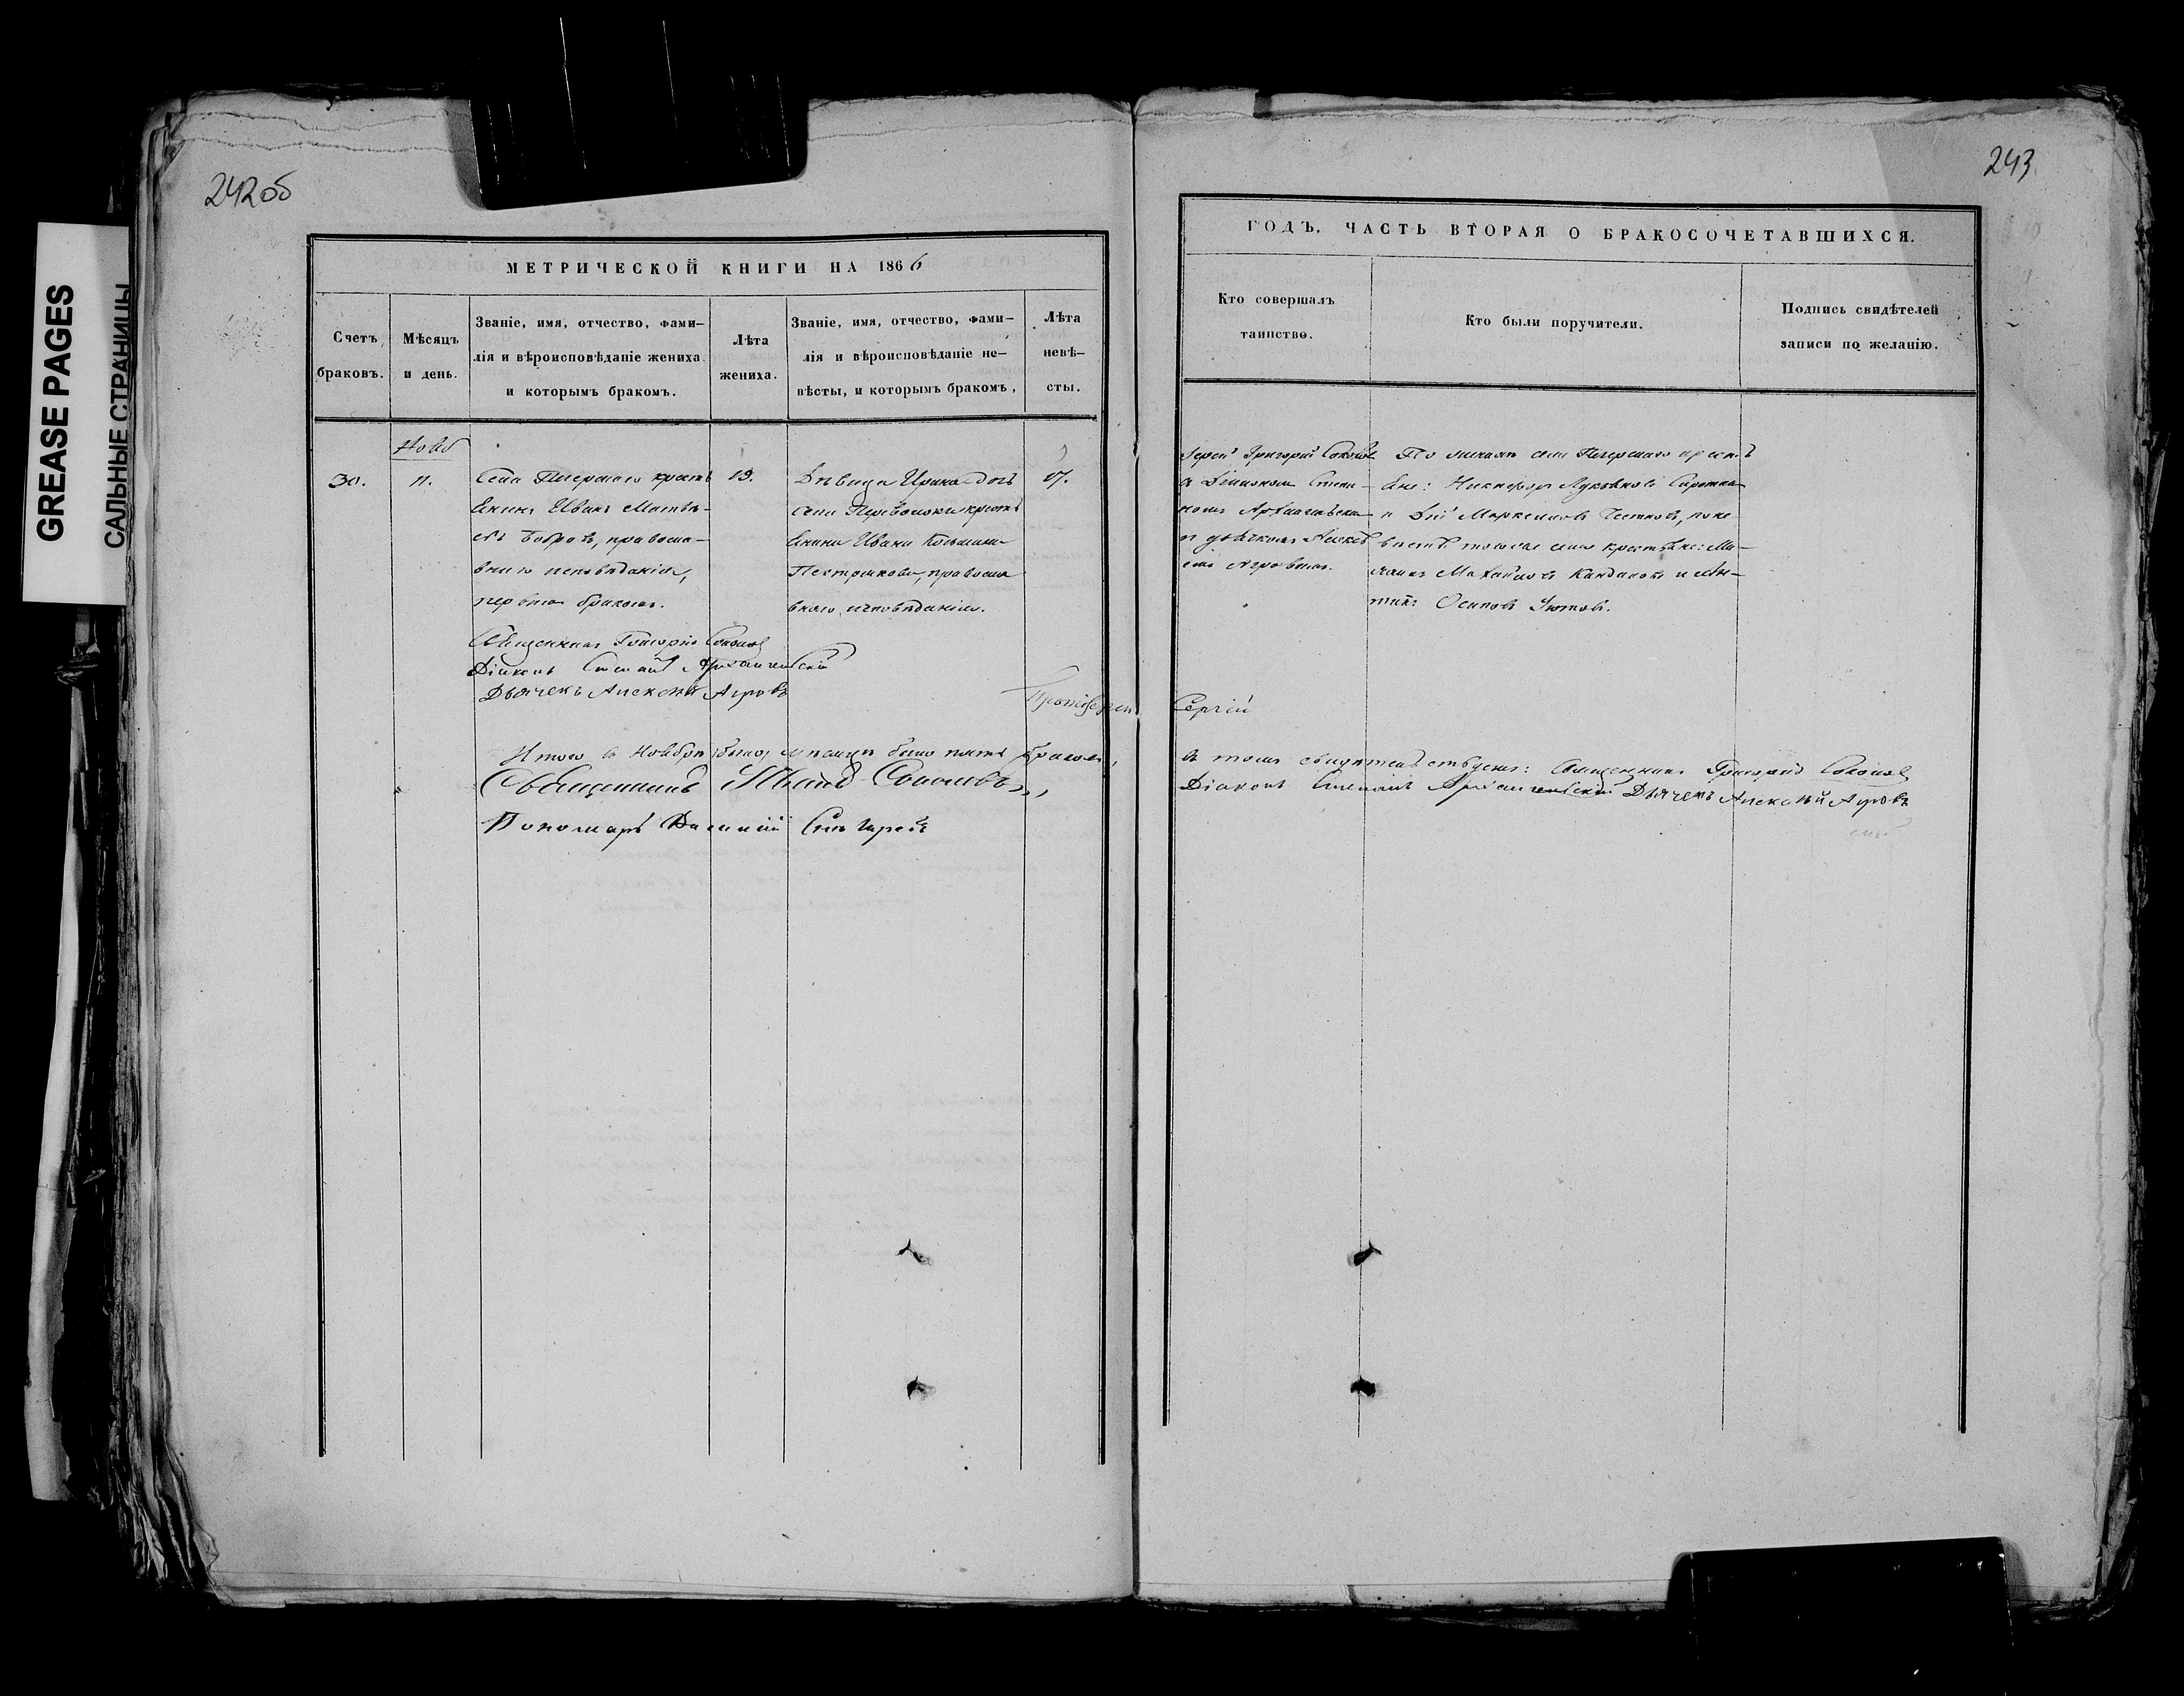 242об
243
GREASE PAGES
САЛЬНЫЕ СТРАНИЦЫ
МЕТРИЧЕСКОЙ КНИГИ НА 1866
Счетъ браковъ.
Мѣсяцъ и день.
Званіе, имя, отчество, фами-
лія и вѣроисповѣданіе жениха
и которымъ бракомъ.
Лѣта жениха.
Званіе, имя, отчество, фами-
лія и вѣроисповѣданіе не-
вѣсты, и которымъ бракомъ,
Лѣта невѣ-
сты.
Нояб
30.
11.
Села Печерскаго кресть
янинъ Иванъ Матвѣ-
евъ Бобровъ, правосла-
внаго исповѣданія,
первымъ бракомъ.
19.
Дѣвица Ирина дочь
села Переволоки кресть
янина Ивана Косьмина
Пестрикова, правосла
внаго исповѣданія.
17.
Священникъ Григорій Соколовъ
Діаконъ Стефанъ Архангельскій
Дьячекъ Алексѣй Агровъ
Протоіерей
Итого в Ноябрѣ мѣсяцѣ было пять браковъ,
Священникъ Соколовъ
Пономарь
ГОДЪ, ЧАСТЬ ВТОРАЯ О БРАКОСОЧЕТАВШИХСЯ.
Кто совершалъ
таинство.
Кто были поручители.
Подпись свидѣтелей
записи по желанію.
Іерей Григорій Соколовъ
съ Діакономъ Стефа-
номъ Архангельским
и дьячкомъ Алексѣ
емъ Агровымъ.
По женихѣ села Печерскаго кресть
яне: Никифоръ Лукьяновъ Сироткин
и по не
вѣстѣ тогоже села крестьяне: Ми-
Михайловъ Кандаловъ и Ми-
Осиповъ Зотовъ.
Сергій
въ томъ свидѣтельствуемъ: Священникъ Григорій Соколовъ
Діаконъ Стефанъ Архангельскій Дьячекъ Алексѣй Агровъ